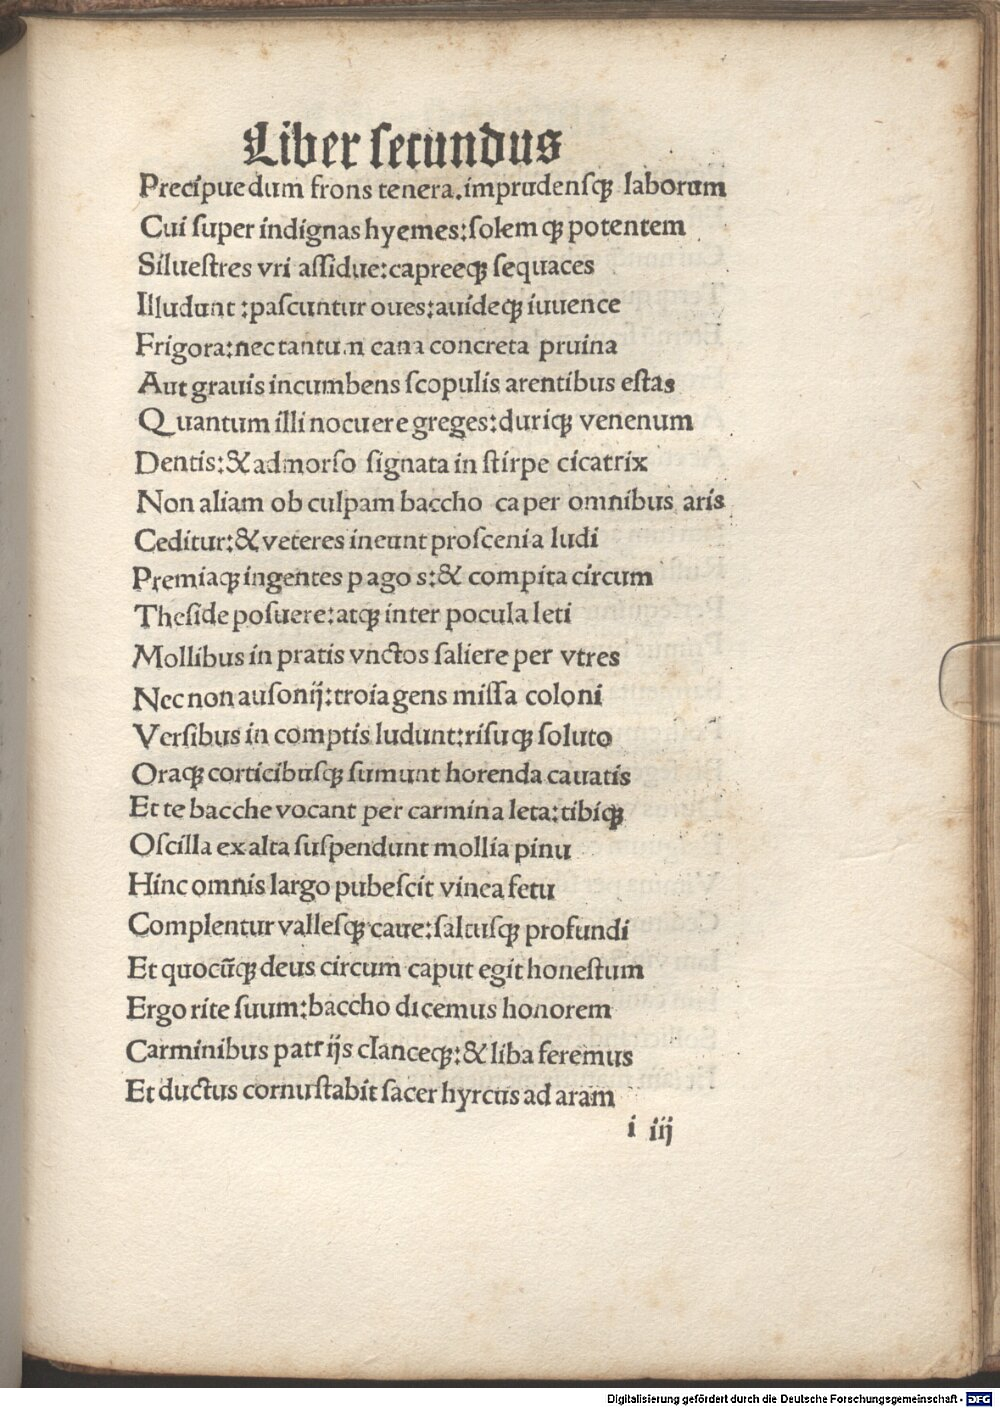 Liber ſecundus
Precipue dum frons tenera.imprudenſqꝫ laborum
Cui ſuper indignas hyemes:ſolem qꝫ potentem
Silueſtres vri aſſidue:capreeqꝫ ſequaces
Illudunt :paſcuntur oues:auideqꝫ iuuence
Frigora:nec tantum cana concreta pruina
Aut grauis incumbens ſcopulis arentibus eſtas
Quantum illi nocuere greges:duriqꝫ venenum
Dentis:& admorſo ſignata in ſtirpe cicatrix
Non aliam ob culpam baccho caper omnibus aris
Ceditur:& veteres ineunt proſcenia ludi
Premiaqꝫ ingentes pagos:& compita circum
Theſide poſuere:atqꝫ inter pocula leti
Mollibus in pratis vnctos ſaliere per vtres
Nec non auſonij:troia gens miſſa coloni
Verſibus in comptis ludunt:riſu qꝫ ſoluto
Oraqꝫ corticibuſqꝫ ſumunt horenda cauatis
Et te bacche vocant per carmina leta:tibiqꝫ
Oſcilla ex alta ſuſpendunt mollia pinu
Hinc omnis largo pubeſcit vinea fetu
Complentur valleſqꝫ caue:ſaltuſqꝫ profundi
Et quocūqꝫ deus circum caput egit honeſtum
Ergo rite ſuum:baccho dicemus honorem
Carminibus patrijs clanceqꝫ:& liba feremus
Et ductus cornu ſtabit ſacer hyrcus ad aram
i iij
Digitalisierung gefördert durch die Deutsche Forschungsgemeinschaft - DFG